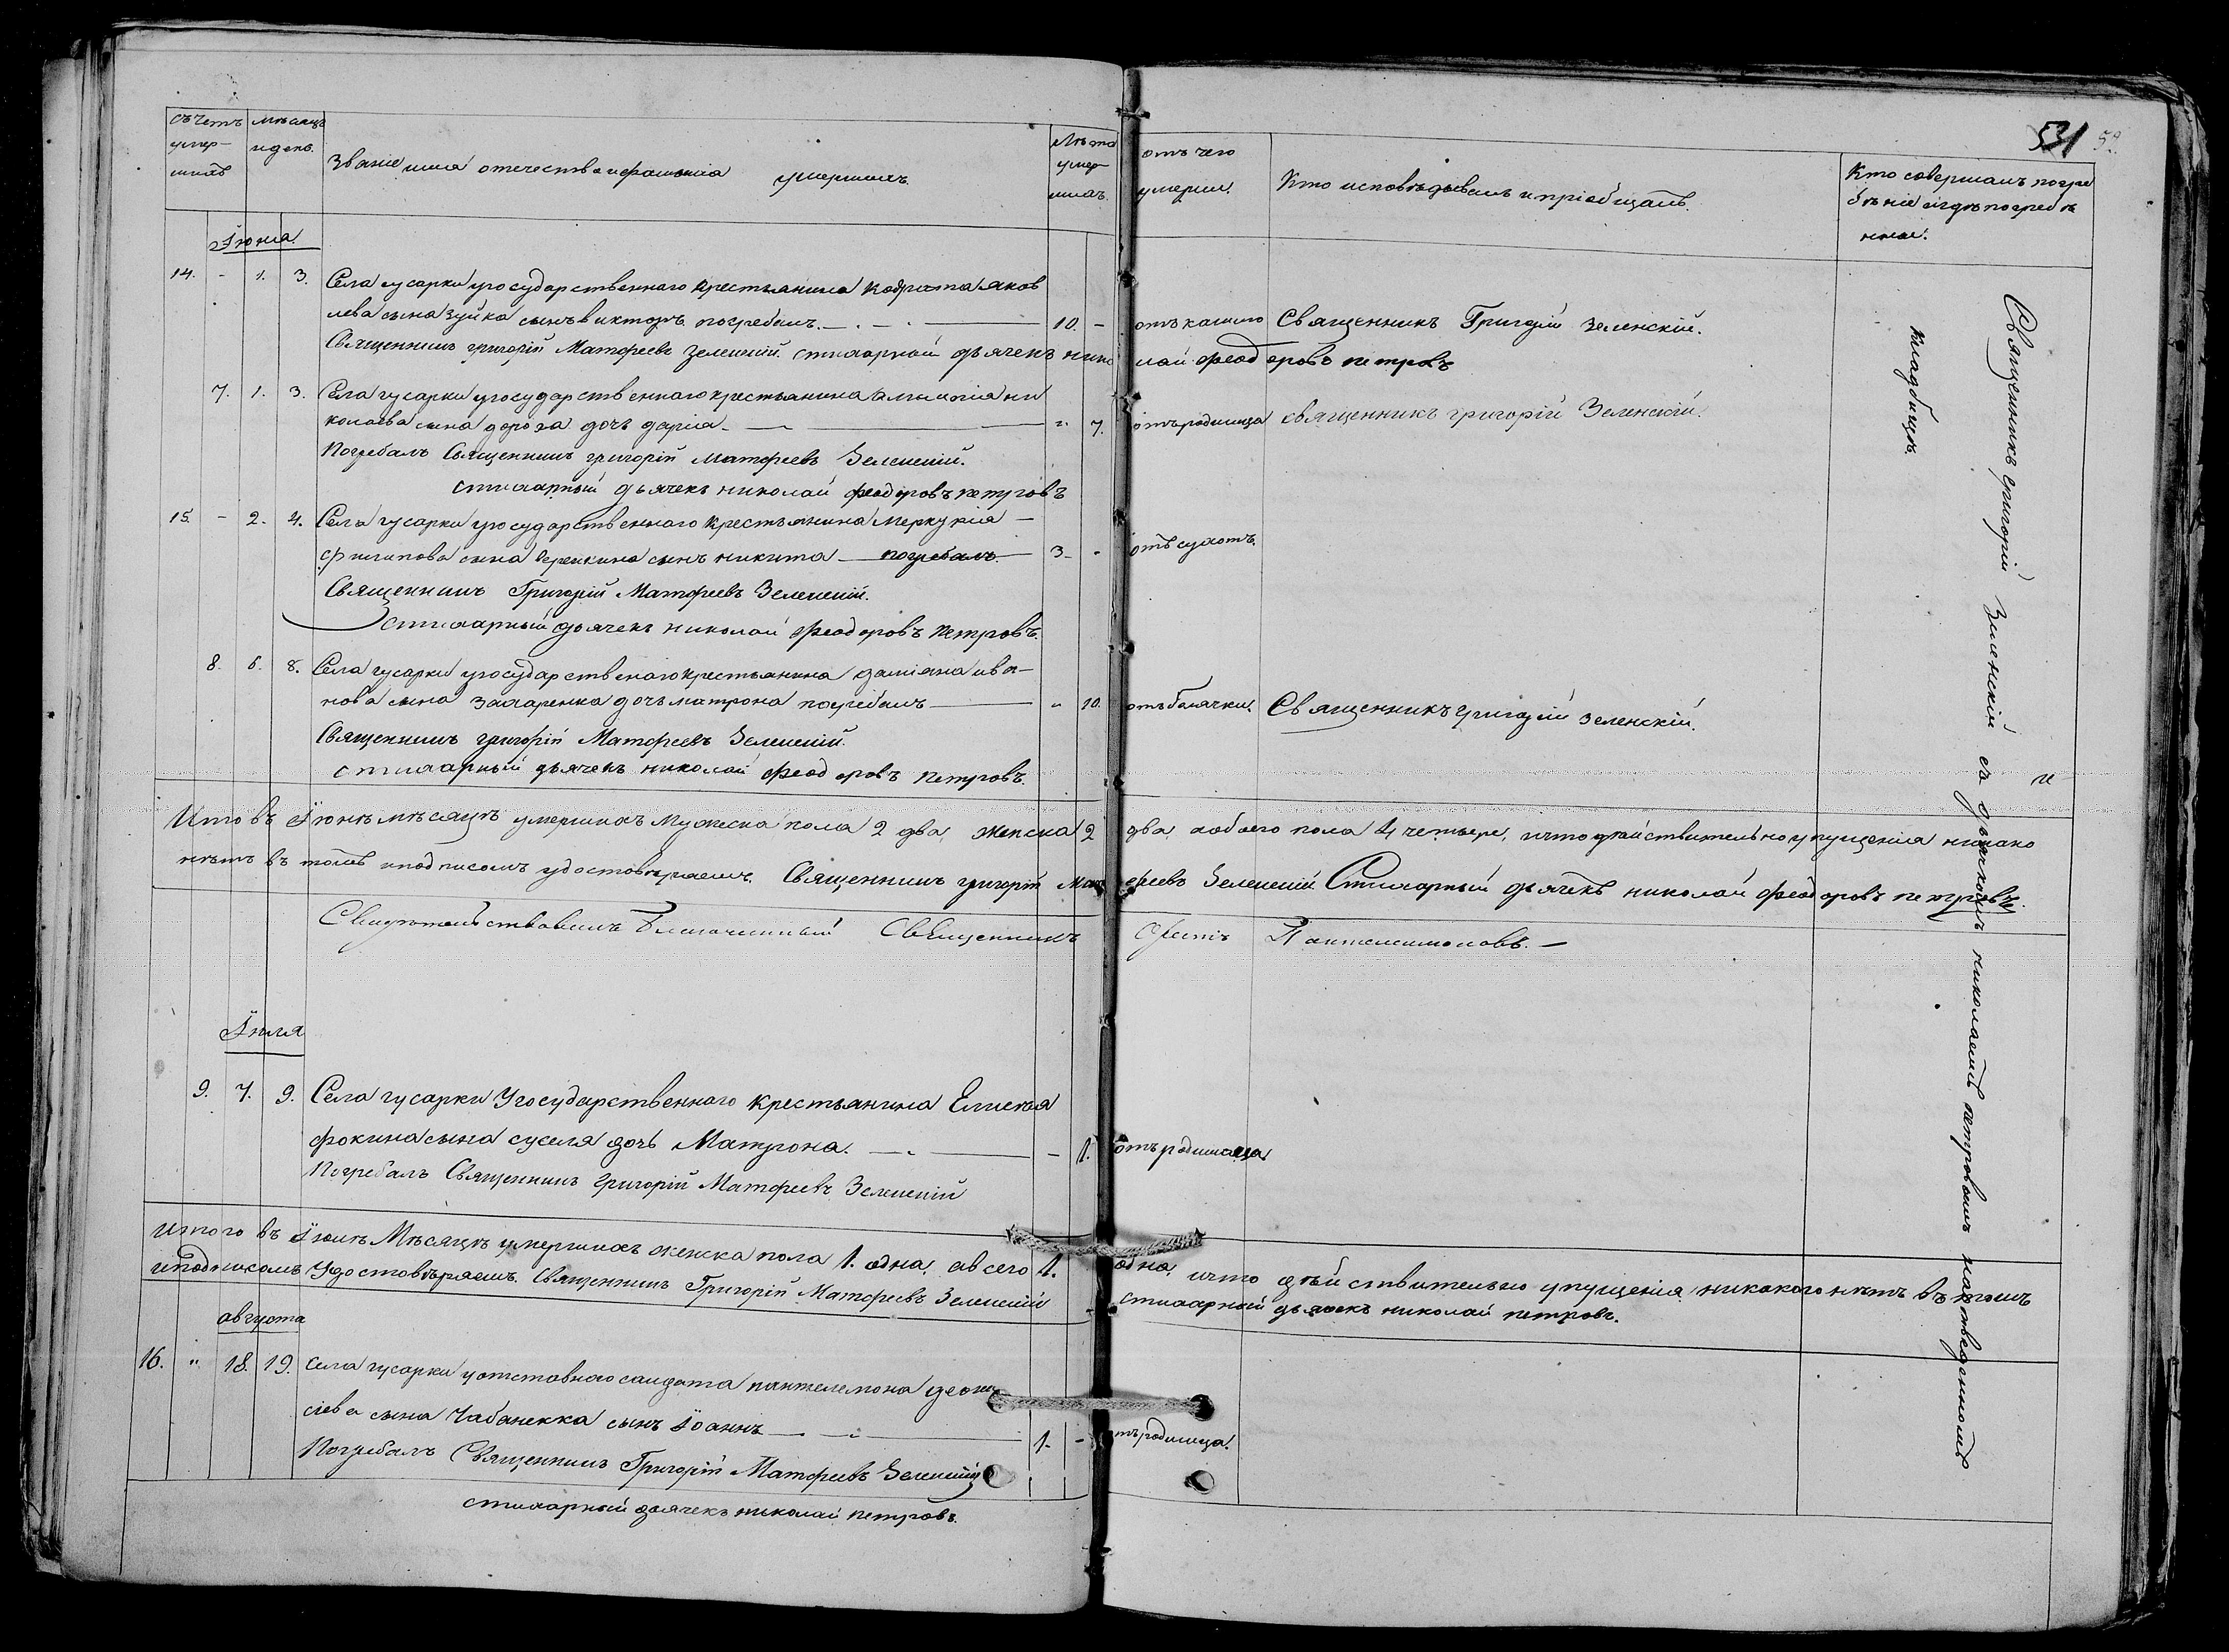 531 52
Счетъ умер- шихъ
мѣсяцъ и день.
Званіе имя отечество и фамилія умершихъ.
Лѣта умер- шихъ.
отъ чего умерли.
Кто исповѣдывалъ и пріобщалъ.
Кто совершалъ погре
бѣніе и гдѣ погребѣ
ны.
Іюня
14. - 1. 3. Села гусарки у государственнаго крестьянина кодрата яков
лева сына зуйка сынъ викторъ погребалъ. 10. - отъ кашлю Священникъ Григорій Зеленскій.
Священникъ григорій Матфеевъ Зеленскій. стихарной дьячекъ нико лай феодоровъ петровъ
7. 1. 3. Села гусарки у государственнаго крестьянина ни
колаева сына дочь дарія - " 7. отъ родимца священникъ григорій Зеленскій.
Погребалъ Священникъ григорій Матфеевъ Зеленскій.
стихарный дьячекъ николай феодоровъ петровъ
15. - 2. 4. Села гусарки у государственнаго крестьянина меркурія -
филипова сына сынъ никита - погребалъ 3 - отъ сухотъ.
Священникъ Григорій Матфеевъ Зеленскій.
стихарный дьячекъ николай феодоровъ петровъ.
8. 6. 8. Села гусарки у государственаго крестьянина даміана ива-
нова сына захаренка дочь матрона погребалъ " 10. отъ болячки. Священникъ григорій зеленскій.
Священникъ григорій Матфеевъ Зеленскій.
стихарный дьячекъ николай феодоровъ петровъ.
Итого въ Іюнѣ мѣсяцѣ умершихъ Мужеска пола 2 два, женска 2 два, а обоего пола 4 четыре, и что действительно упущенія никако
нѣтъ въ томъ и подписомъ удостовѣряемъ. Священникъ григорій Матфеевъ Зеленскій Стихарный дьячекъ николай феодоровъ петровъ.
Свидѣтельствовалъ Благочинный Священникъ Пантелеимоновъ. -
Іюля
9. 7. 9. Села гусарки У государственнаго крестьянина Елисея
фокина сына суселя дочь Матрона. - 1. отъ родимца
Погребалъ Священникъ Григорій Матфеевъ Зеленскій
Итого въ Іюлѣ Мѣсяцѣ умершихъ женска пола 1. одна, а всего 1. одна, и что дѣйствительно упущенія никакого нѣтъ въ томъ
и подписомъ Удостовѣряемъ. Священникъ Григорій Матфеевъ Зеленскій стихарной дьячекъ николай петровъ.
августа
16. " 18. 19. Села гусарки у отставного салдата пантелемона
сіева сына Чабаненка сынъ Іоаннъ 1. - тъ родимца.
Погребалъ Священникъ Григорій Матфеевъ Зеленскій
стихарный дьячекъ николай петровъ.
Священникъ григорій Зиленскій съ дьячкомъ николаемъ петровымъ на отведенномъ
кладбищѣ.